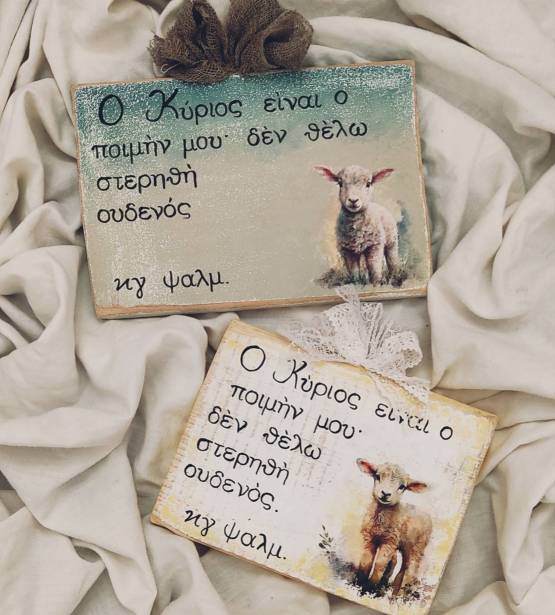 Ο Κύριος εἰναι ο
ποιμὴν μου· δὲν θὲλω
στερηθὴ
ουδενός
κγ ψαλμ.
Ο Κύριος είναι ο
ποιμὴν μου·
δὲν θὲλω
στερηθὴ
ουδενός.
κγ ψαλμ.